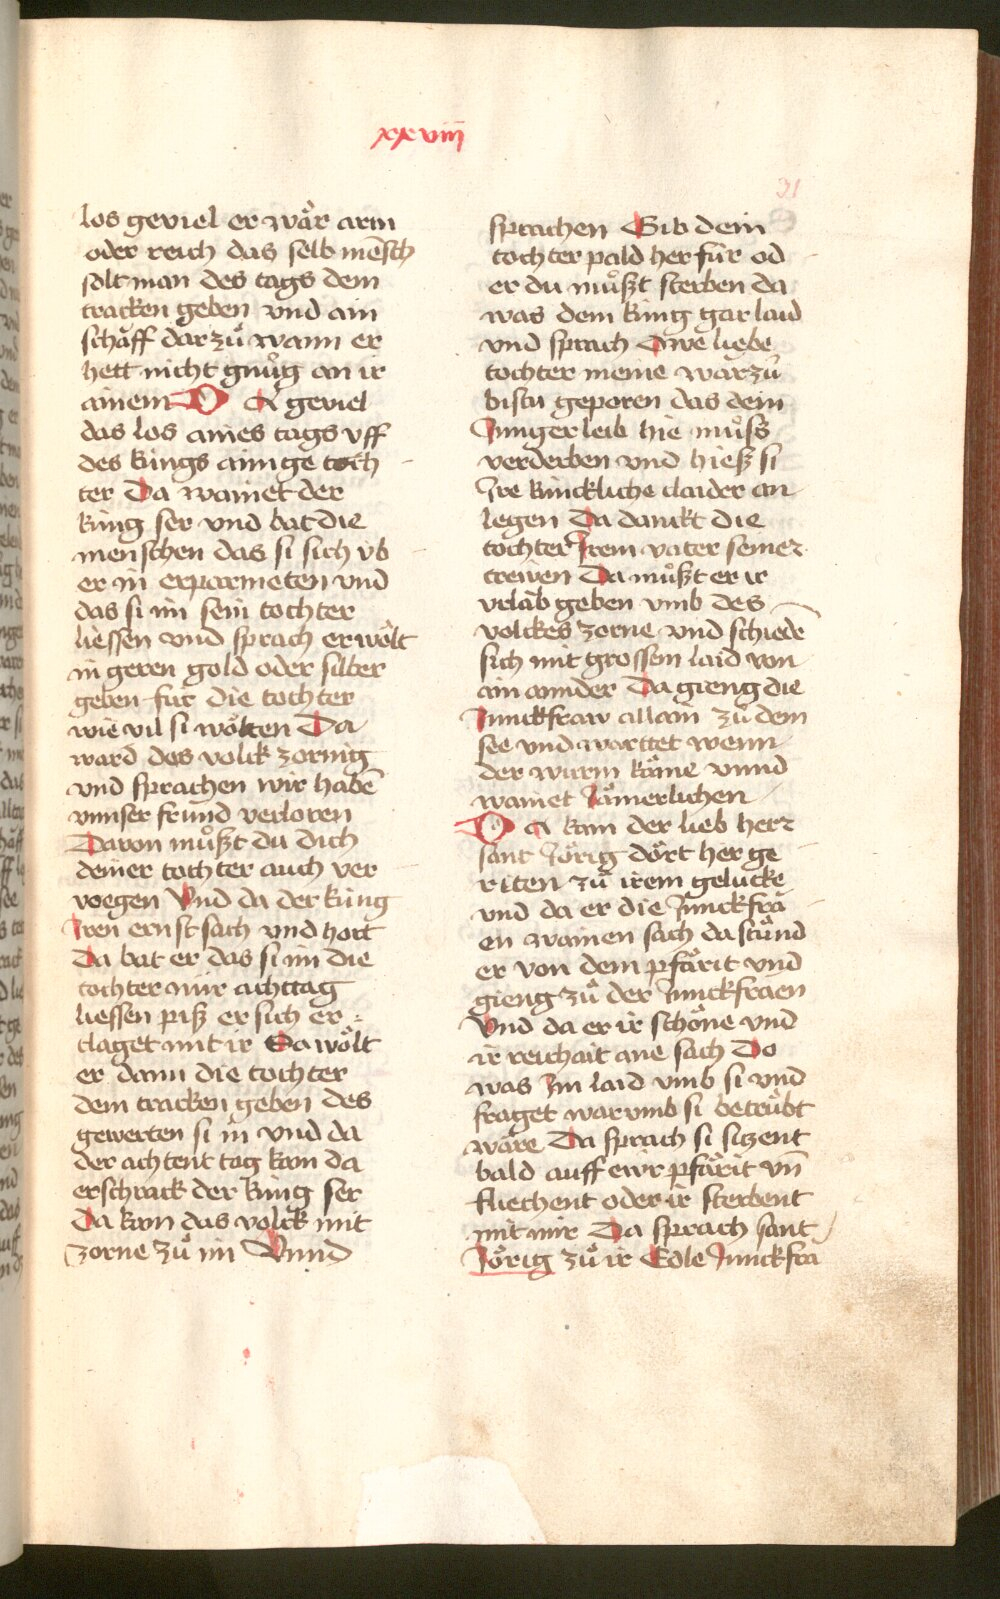 xxviii
31
los geviel er wår arm
oder reich das selb mēsch
solt man des tags dem
tracken geben vnd ain
schåff darzů wann er
hett nicht gnůg an ir
ainem DA geviel
das los aines tags vff
des kings ainige toch
ter Da wainet der
king ser vnd bat die
menschen das si sich vb
er in erparmeten vnd
das si im sein tochter
liessen vnd sprach er wölt
in geren gold oder silber
geben für die tochter
wie vil si wölten Da
ward das volck zornig
vnd sprachen wir habē
vnnser fründ verloren
Daron můßt du dich
deiner tochter auch ver
wegen Vnd da der king
Iren ernst sach vnd hort
Da bat er das si im die
tochter nur achttag
liessen piß er sich er
claget mit ir Da wölt
er dann die tochter
dem tracken geben des
gewerten si in vnd da
der achtent tag kam da
erschrack der king ser
Da kam das volck mit
zorne zů im Vnnd
sprachen Gib dein
tochter pald her für od
er du můßt sterben da
was dem king gar laid
vnd sprach Awe liebe
tochter meine warzů
bistu geporen das dein
Iunger leib hie můss
verderben vnd hieß si
Ire kinckliche claider an
legen Da danckt die
tochter Irem vater seiner
treiven Da můßt er ir
vrlab geben vmb des
volckes zorne vnd schiedē
sich mit grossem laid von
ain annder Da gieng die
Iunckfraw allain zů dem
see vnd warttet wenn
der wurm kåme vnnd
wainet Iåmerlichen
DA kam der lieb herr
sant Jörig dört her ge
riten zů irem gelucke
vnd da er die Iunckfra
en wainen sach da stůnd
er von dem pfårit vnd
gieng zů der Iunckfraen
Vnd da er ir schöne vnd
ir reichait ane sach Do
was Im laid vmb si vnd
fraget warumb si betrůbt
wåre Da sprach si sitzent
bald auff ewr pfårit vñ
fliechent oder ir sterbent
mit mir Da sprach sant
Jörig zů ir Edle Iunckfra